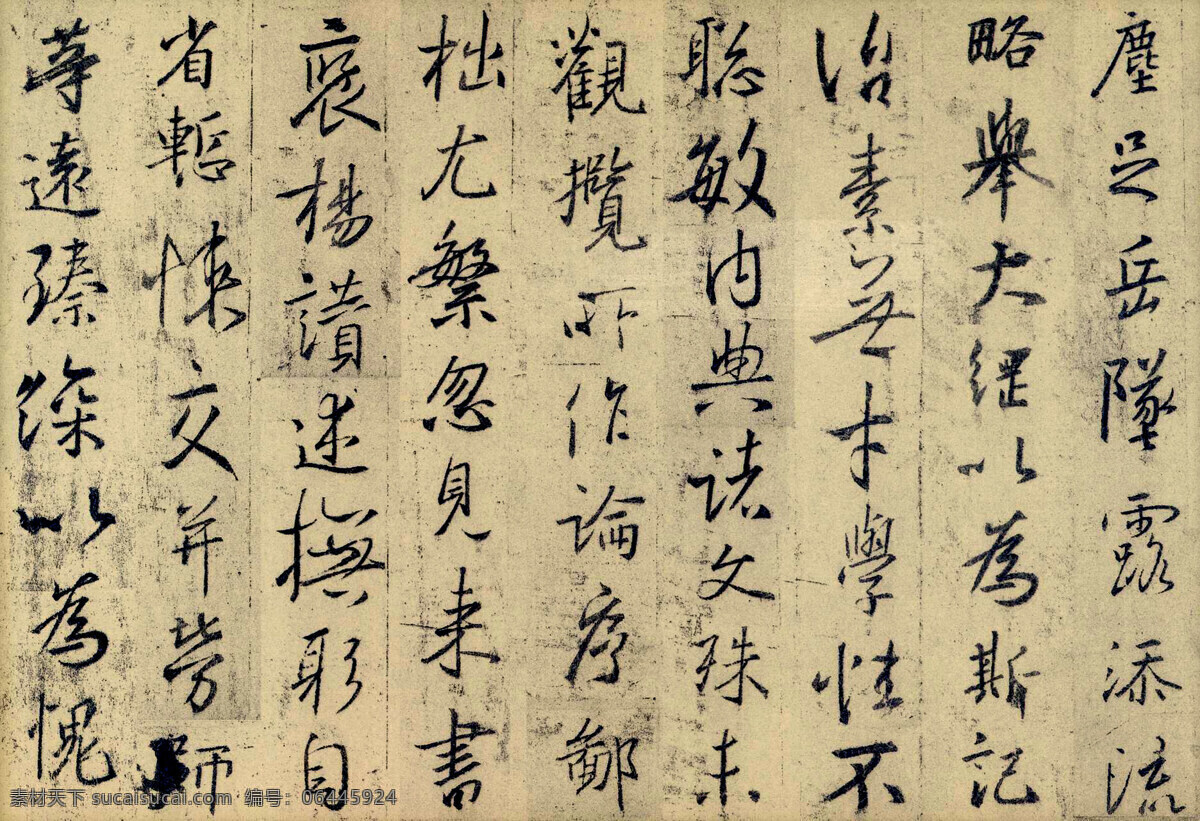 塵足岳墜露添流
略舉大綱以為斯記
治素無才學性不
聰敏內典諸文殊未
觀攬所作論序鄙
拙尤繁忽見來書
褒揚讚述撫躬自
省慙悚交并勞師
等遠臻深以為愧
素材天下 sucaisucai.com 编号：06445924